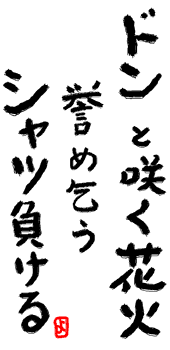 ドンと咲く花火
誉め乞う
シャツ負ける